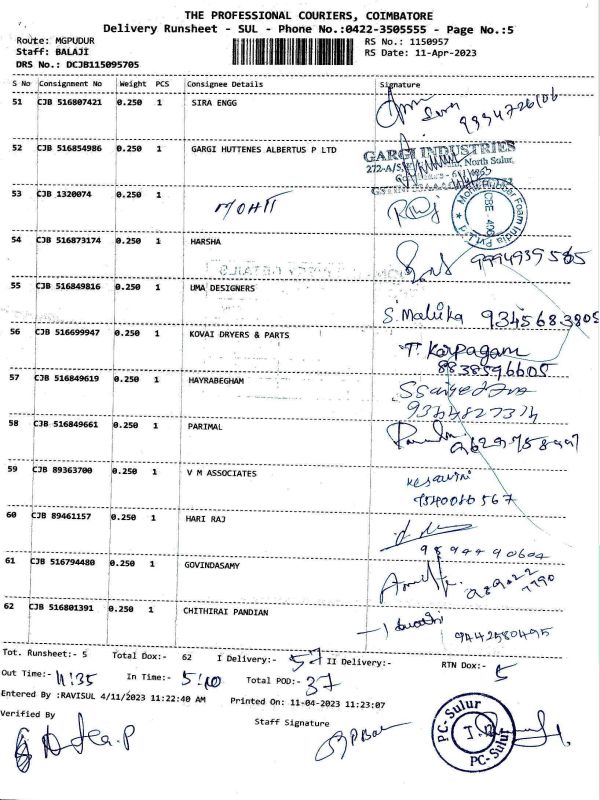 THE PROFESSIONAL COURIERS, COIMBATORE
Delivery Runsheet - SUL - Phone No.:0422-3505555 - Page No.:5
Route: MGPUDUR RS No.: 1150957
Staff: BALAJI RS Date: 11-Apr-2023
DRS No.: DCJB115095705
S No Consignment No Weight PCS Consignee Details Signature
51 CJB 516807421 0.250 1 SIRA ENGG
52 CJB 516854986 0.250 1 GARGI HUTTENES ALBERTUS P LTD
GARGI INDUSTRIES
North Sulur,
53 CJB 1320074 0.250 1 MOHIT
54 CJB 516873174 0.250 1 HARSHA
55 CJB 516849816 0.250 1 UMA DESIGNERS
S. Malika 9345683805
56 CJB 516699947 0.250 1 KOVAI DRYERS & PARTS
T. Karpagam
8838596605
57 CJB 516849619 0.250 1 HAYRABEGHAM
58 CJB 516849661 0.250 1 PARIMAL
59 CJB 89363700 0.250 1 V M ASSOCIATES
60 CJB 89461157 0.250 1 HARI RAJ
61 CJB 516794480 0.250 1 GOVINDASAMY
62 CJB 516801391 0.250 1 CHITHIRAI PANDIAN
9442580495
Tot. Runsheet:- 5 Total Dox:- 62 I Delivery:- 57 II Delivery:- RTN Dox:- 5
Out Time:- 11:35 In Time:- 5:10 Total POD:- 37
Entered By :RAVISUL 4/11/2023 11:22:40 AM Printed On: 11-04-2023 11:23:07
Verified By Staff Signature
PC-Sulur
PC-Sulur